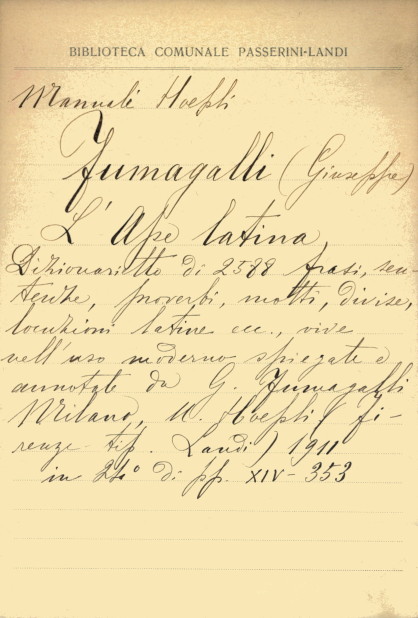 BIBLIOTECA COMUNALE PASSERINI-LANDI
Manuali Hoepli
Fumagalli (Giuseppe)
L'Ape latina
Dizionarietto di 2588 frasi, sen-
tenze, proverbi, motti, divise,
locuzioni latine ecc., vive
nell'uso moderno spiegate e
annotate da G. Fumagalli
Milano, U. Hoepli (fi-
renze tip. Landi) 1911
in 24° di pp. XIV-353